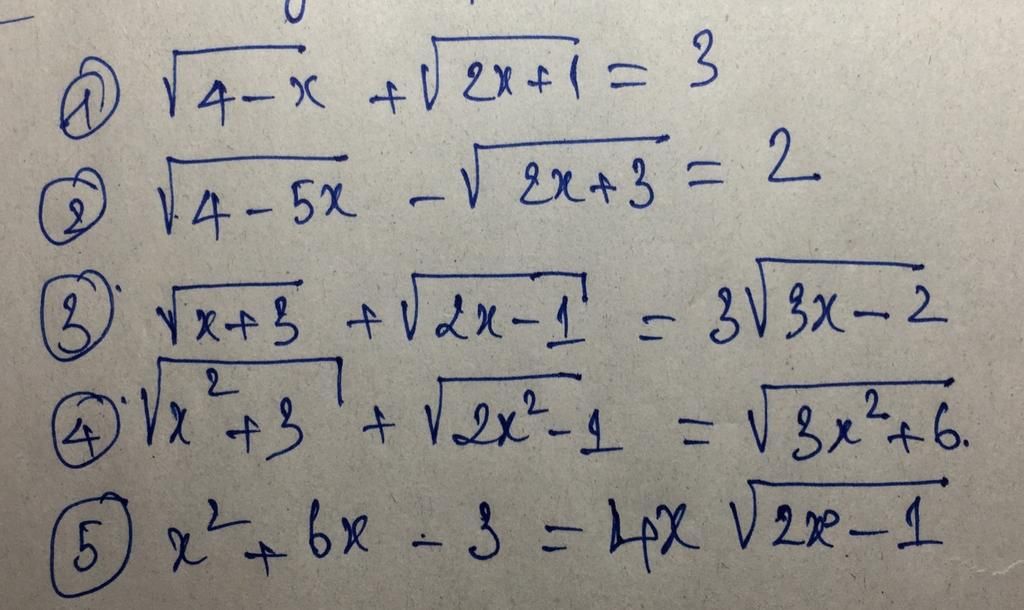 ① √(4-x) + √(2x+1) = 3
② √(4-5x) - √(2x+3) = 2
③ √(x+3) + √(2x-1) = 3√(3x-2)
④ √(x²+3) + √(2x²-1) = √(3x²+6).
⑤ x² + 6x - 3 = 4x √(2x-1)